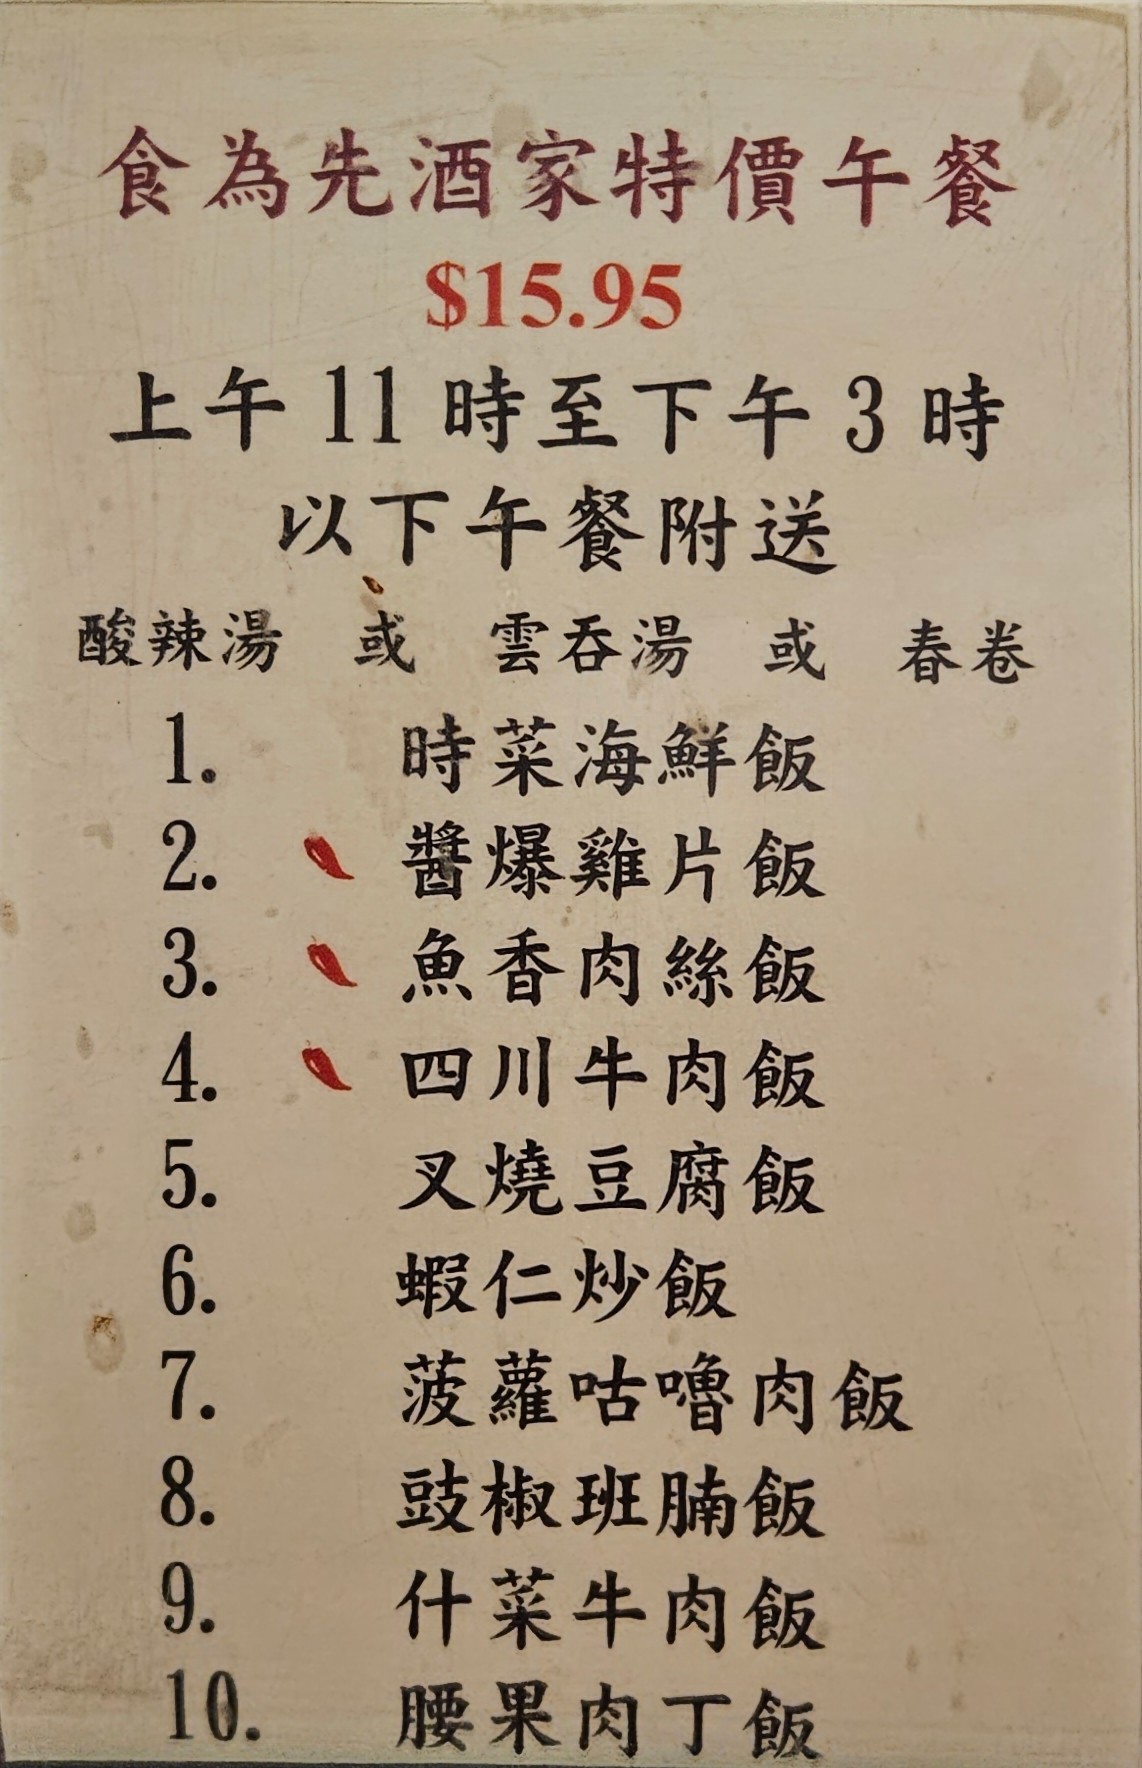 食為先酒家特價午餐
$15.95
上午 11 時至下午 3 時
以下午餐附送
酸辣湯 或 雲吞湯 或 春卷
1. 時菜海鮮飯
2. 醬爆雞片飯
3. 魚香肉絲飯
4. 四川牛肉飯
5. 叉燒豆腐飯
6. 蝦仁炒飯
7. 菠蘿咕嚕肉飯
8. 豉椒班腩飯
9. 什菜牛肉飯
10. 腰果肉丁飯